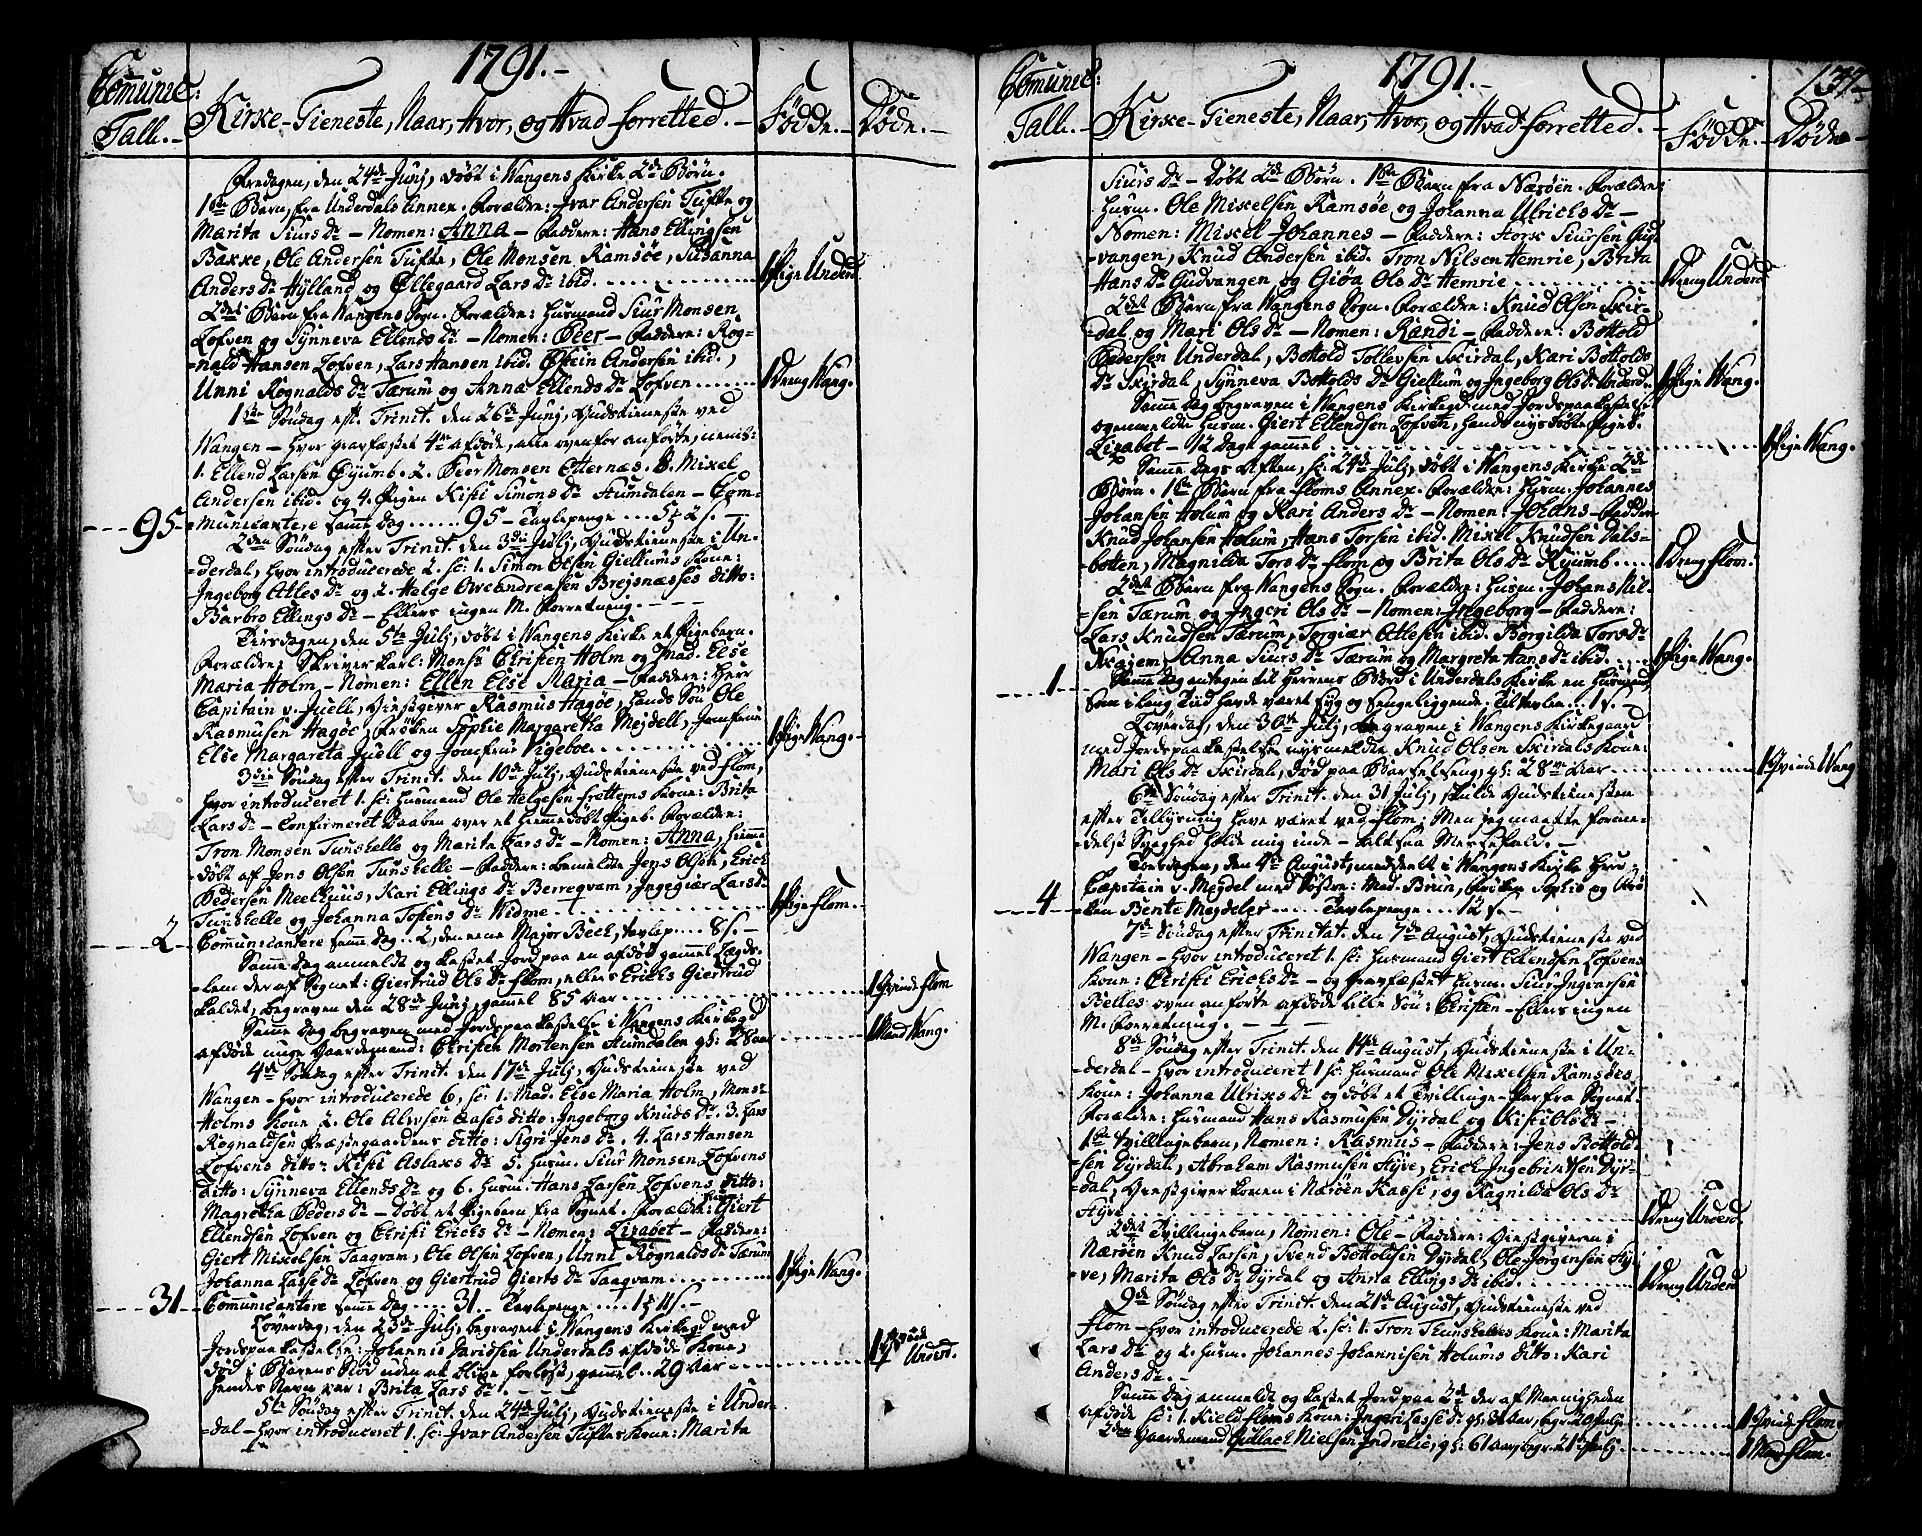 1791.-
Communic:
Tall.-
Kirke-Tieneste, Naar, Hvor, og Hvad forretted.-
Fødde.-
Døde.-
Fredagen, den 24de Junj, døbt i Wangens Kirke 2de Børn.
1ste Barn, fra Underdals Annex. Forældre: Ivar Andersen Tufte og
Marita Siurs Dr - Nomen: Anna - Faddere: Hans Ellingsen
Bakke, Ole Andersen Tufte, Ole Monsen Ramsøe, Susanna
Anders Dr Hylland og Ellegaard Lars Dr ibid.
1 Pige Underd.
2det Barn fra Wangens Sogn. Forældre: Husmand Siur Monsen
Lofven og Synneva Ellends Dr - Nomen: Peer - Faddere: Rog-
-nald Hansen Lofven, Lars Hansen ibid. Østein Andersen ibid.,
Unni Rognalds Dr Tærum og Anna Ellends Dr Lofven
1 Dreng Wang.
1ste Søndag eft. Trinit. den 26de Junj, Gudstieneste ved
Wangen - hvor gravfæstet 4re afdøde, alle ovenfor anførte, nemlig:
1. Ellend Larsen 2. Peer Monsen Otternæs. 3. Mikel
Andersen ibid. og 4. Pigen Kisti Simons Dr Humdalen - Com-
95-
-municantere samme Dag ...... 95 - Tavlepenge
2den Søndag efter Trinit. den 3die Julj, Gudstieneste i Un-
-derdal, hvor introducerede 2. sc: 1. Simon Olsen Giellums Kone:
Ingeborg Atles Dr og 2. Helge Oveandreasen Breisnæsses ditto:
Barbro Ellings Dr - Ellers ingen M. Forretning.
Tirsdagen, den 5te Julj, døbt i Wangens Kirke et Pigebarn.
Forældre: Skriver Karl: Monsr Christen Holm og Mad. Else
Maria Holm - Nomen: Ellen Else Maria - Faddere: Herr
Capitain v. Juell, Giestgiver Rasmus Hagøe, hands Søn Ole
Rasmusen Hagøe, Frøken Sophie Margaretha Mejdell, Jomfrue
Else Margareta Juell og Jomfrue Vigeboe
1 Pige Wang.-
3die Søndag efter Trinit. den 10de Julj, Gudstieneste ved Flom,
hvor introduceret 1. sc: Husmand Ole Helgesen Frettems Kone: Brita
Lars Dr - Confirmeret Daaben over et hiemmedøbt Pigeb. Forældre:
Tron Monsen Tunshelle og Marita Lars Dr - Nomen: Anna, hieme-
-døbt af Jens Olsen Tunshelle - Faddere: bemeldte Jens Olsen, Erich
Pedersen Meelhuus, Kari Ellings Dr Berreqvam, Ingegiær Lars Dr
Tunshelle og Johanna Tosens Dr Widme
1 Pige Flom.-
2
Communicantere samme Dag .. 2, den eene Major Beck, tavlep.... 8 s.-
Samme Dag anmeldt og kastet Jord paa en afdød gammel Lægds-
-lem der af Sognet: Giertrud Ols Dr Flom, ellers Erichs Giertrud
kaldet, begraven den 28de Junj, gamel 85 Aar
1 Qvinde Flom
Samme Dag begraven med Jordspaakastelse i Wangens Kirkegd
afdøde unge Gaardemand: Christen Mortensen Humdalen gl: 28 aar
1 Mand Wang.
4de Søndag efter Trinit. den 17de Julj, Gudstieneste ved
Wangen - hvor introducerede 6, sc: 1. Mad. Else Maria Holm, Monsr
Holms Kone 2. Ole Alvsen Aases ditto: Ingeborg Knuds Dr. 3. Lars
Rognaldsen Præstegaardens ditto: Sigri Jens Dr. 4. Lars Hansen
Lofvens ditto: Kisti Aslaks Dr 5. Husm. Siur Monsen Lofvens
ditto: Synneva Ellends Dr og 6. Husm. Hans Larsen Lofvens ditto:
Magretha Peders Dr - Døbt et Pigebarn fra Sognet. Forældre: Husm. Giert
Ellendsen Lofven og Christi Erichs Dr - Nomen: Lizabet - Faddere:
Giert Mikelsen Taagvam, Ole Olsen Lofven, Unni Rognalds Dr Tærum
Johanna Lasse Dr Lofven og Giertrud Gierts Dr Taaqvam
1 Pige Wang.
31
Communicantere samme Dag ..... 31 .. Tavlepenge
Løverdag, den 23de Julj, begraven i Wangens Kirkegd med
Jordspaakastelse: Johannis Underdals afdøde Kone,
død i Barns Nød uden at blive forløst, gammel .. 29 Aar
1 Qvinde Underd.
hendes Navn var: Brita Lars Dr.
5te Søndag efter Trinit. den 24de Julj, Gudstieneste i Under-
-dal - hvor introduceret 1. sc: Ivar Andersen Tuftes Kone: Marita
1791.-
137
Communic:
Tall.-
Kirke-Tieneste, Naar, Hvor, og Hvad forretted.-
Fødde.-
Døde-
Siurs Dr - Døbt 2de Børn. 1ste Barn fra Nærøen. Forældre:
Husm. Ole Mikelsen Ramsøe og Johanna Ulrichs Dr -
Nomen: Mikel Johannes - Faddere: Siursen Gud-
-vangen, Knud Andersen ibid. Tron Nilsen Hemrie, Brita
Hans Dr Gudvangen og Giøa Ols Dr Hemrie
1 Dreng Underd
2det Barn fra Wangens Sogn. Forældre: Knud Olsen Skir-
-dal og Mari Ols Dr - Nomen: Randi - Faddere: Bottold
Pedersen Underdal, Bottold Tollevsen Skirdal, Kari Bottolds
Dr Skirdal, Synneva Bottolds Dr Giellum og Ingeborg Ols Dr Underd.
1 Pige Wang.
Samme Dag begraven i Wangens Kirkegd med Jordspaakastelse
ovenmeldte Husm. Giert Ellendsen Lofven, hands nysdøbte Pigeb.
Lizabet - 12 Dage gammel
1 Pige Wang.
Samme Dags Aften, sc: 24de Julj, døbt i Wangens Kirke 2de
Børn. 1ste Barn fra Floms Annex. Forældre: Husm. Johannes
Johansen Holum og Kari Anders Dr - Nomen: Johans - Faddere
Knud Johansen Holum, Hans Torsen ibid. Mikel Knudsen Dals-
-botten, Magnilda Tors Dr Flom og Brita Ols Dr Ryumb
1 Dreng Flom.
2det Barn fra Wangens Sogn. Forældre: Husm. Johans Nil-
-sen Tærum og Ingeri Ols Dr - Nomen: Ingeborg - Faddere:
Lars Knudsen Tærum, Torgiær Atlesen ibid. Borgilda Tors Dr
Skajem, Anna Siurs Dr Tærum og Margreta Hans Dr ibid.
1 Pige Wang.
1
Samme Dag antagen til Herrens Bord i Underdals Kirke en Husmand,
som i lang Tiid havde været syg og sengeliggende: til tavlen ... 1 s.-
Løverdag, den 30te Julj, begraven i Wangens Kirkegaard
med Jordspaakastelse nysmeldte Knud Olsen Skirdals Kone:
Mari Ols Dr Skirdal, død paa Barselseng, gl: 28 Aar
1 Qvinde Wang
6te Søndag efter Trinit. den 31 Julj, skulde Gudstienesten
efter Tillysning have været ved Flom; Men jeg maatte formedelst
Svaghed holde mig inde - altsaa Messefald.
Torsdagen, den 4de August, meddeelt i Wangens Kirke Herr
4
Capitain v. Megdel med Søstre: Mad. Brun, Frøken Sophie og Frø-
-ken Bente Mejdeler ..... Tavlepenge ... 12 s.-
7de Søndag efter Trinitat. den 7de August, Gudstieneste ved
Wangen - hvor introduceret 1. sc: Husmand Giert Ellendsen Lofvens
Kone: Christi Erichs Dr - og gravfæstet Husm. Siur Ingvarsen
Belles oven anførte afdøde lille Søn: Christen - Ellers ingen
M. Forretning.
8de Søndag efter Trinit. den 14de August, Gudstieneste i Un-
-derdal - hvor introduceret 1 sc: Husmand Ole Mikelsen Ramsøes
Kone: Johanna Ulriks Dr og døbt et Tvillinge-Par fra Sognet.
Forældre: Husmand Hans Rasmusen Dyrdal og Kisti Ols Dr -
1ste Tvillingebarn, Nomen: Rasmus - Faddere: Jens Bottold-
-sen Dyrdal, Abraham Rasmusen Styve, Erich Ingebrigtsen Dyr-
-dal, Giestgiverkonen i Nærøen Kassi, og Ragnilda Ols Dr
Styve
1 Dreng Underd.
2det Tvillingebarn, Nomen: Ole - Faddere: Giestgiveren i
Nærøen Knud Larsen, Svend Bottoldsen Dyrdal, Ole Jørgensen Sty-
-ve, Marita Ols Dr Dyrdal og Anna Ellings Dr ibid.
1 Dreng Underd
9de Søndag efter Trinit. den 21de August, Gudstieneste ved
Flom - hvor introducerede 2. sc: 1. Tron Tunshelles Kone: Marita
Lars Dr og 2. Husm. Johannes Johannisen Holums ditto: Kari
Anders Dr.-
Samme Dag anmeldt og kastet Jord paa 2de der af Menigheden
afdøde sc: 1. Kield Floms Kone: Ingeri Lasse Dr
1 Qvinde Flom,
2den Gaardemand Gullach Nielsen Indrelie, gl: 61 Aar, begr. 21de Julj
1 Mand Flom.